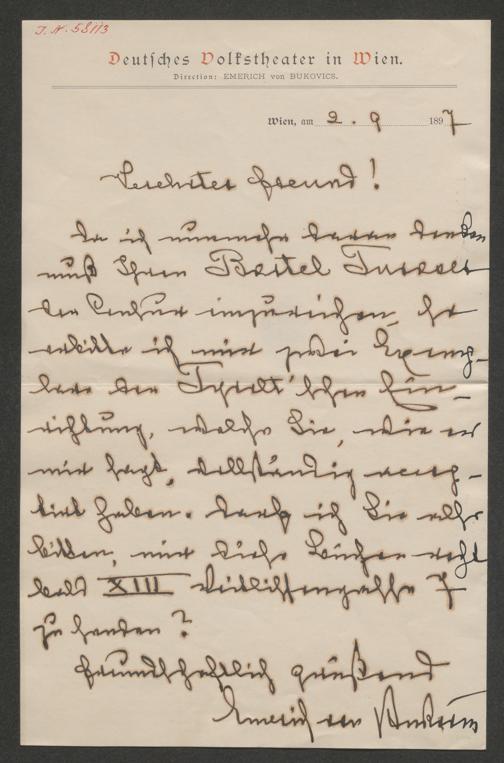 J. N. 58113
Deutsches Volkstheater in Wien.
Direction: EMERICH von BUKOVICS.
Wien, am 2. 9 1897
Geehrter Freund!
Da ich nunmehr daran denken
muß Ihren Bartel Turaser
der Censur einzureichen, so
erbitte ich mir zwei Exemp-
lare der Tyrolt'schen Ein-
richtung, welche Sie, wie er
mir sagt, vollständig accep-
tirt haben. Darf ich Sie also
bitten, mir diese Bücher recht
bald XIII Veitlissengasse 7
zu senden?
Freundschaftlich grüßend
Emerich von Bukovics